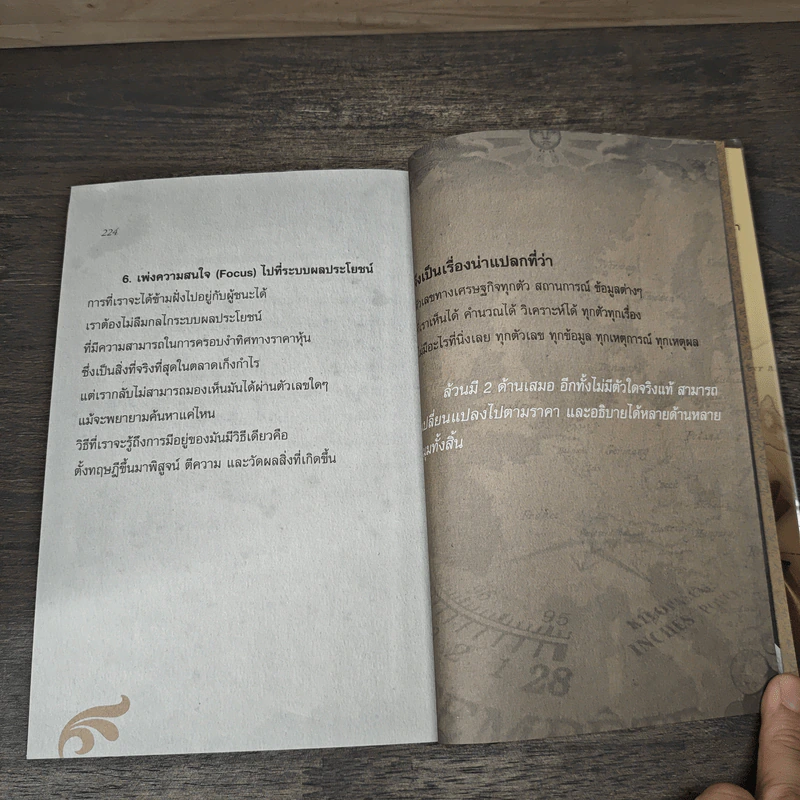 224
6. เพ่งความสนใจ (Focus) ไปที่ระบบผลประโยชน์
การที่เราจะได้ข้ามฝั่งไปอยู่กับผู้ชนะได้
เราต้องไม่ลืมกลไกระบบผลประโยชน์
ที่มีความสามารถในการครอบงำทิศทางราคาหุ้น
ซึ่งเป็นสิ่งที่จริงที่สุดในตลาดเก็งกำไร
แต่เรากลับไม่สามารถมองเห็นมันได้ผ่านตัวเลขใดๆ
แม้จะพยายามค้นหาแค่ไหน
วิธีที่เราจะรู้ถึงการมีอยู่ของมันมีวิธีเดียวคือ
ตั้งทฤษฎีขึ้นมาพิสูจน์ ตีความ และวัดผลสิ่งที่เกิดขึ้น
เป็นเรื่องน่าแปลกที่ว่า
เลขทางเศรษฐกิจทุกตัว สถานการณ์ ข้อมูลต่างๆ
เราเห็นได้ คำนวณได้ วิเคราะห์ได้ ทุกตัวทุกเรื่อง
มีอะไรที่นิ่งเลย ทุกตัวเลข ทุกข้อมูล ทุกเหตุการณ์ ทุกเหตุผล
ล้วนมี 2 ด้านเสมอ อีกทั้งไม่มีตัวใดจริงแท้ สามารถ
ปลี่ยนแปลงไปตามราคา และอธิบายได้หลายด้านหลาย
มุมทั้งสิ้น
95
1 28